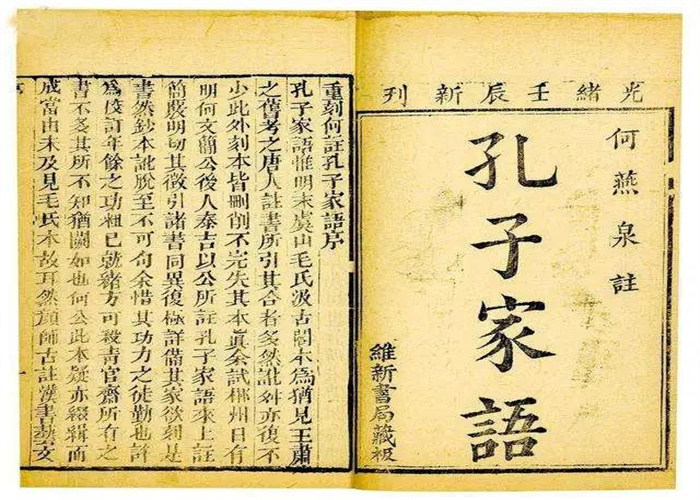 光緒壬辰新刊
何燕泉註
孔子家語
維新書局藏板
重刻何註孔子家語序
孔子家語惟明末虞山毛氏汲古閣本為猶見王肅
之舊考之唐人註書所引其合者多然訛舛亦復不
少此外刻本皆刪削不完失其本眞余試郴州日有
明何文簡公後人泰吉以公所註孔子家語來上註
簡嚴明切其徵引諸書同異復極詳備其家欲刻是
書然鈔本訛脫至不可句余惜其功力之徒勤也許
為校訂年餘之功粗已就緒方可殺青官齋所有之
書不多其所不知猶闕如也何公此本疑亦綴緝而
成當由未及見毛氏本故耳然顏師古註漢書藝文